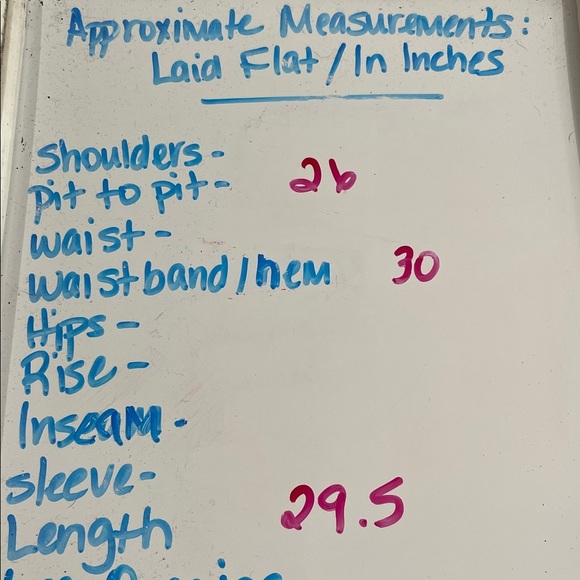 Approximate Measurements:
Laid Flat / In Inches
Shoulders-
pit to pit- 26
waist-
waistband / hem 30
Hips-
Rise-
Inseam-
sleeve-
Length 29.5